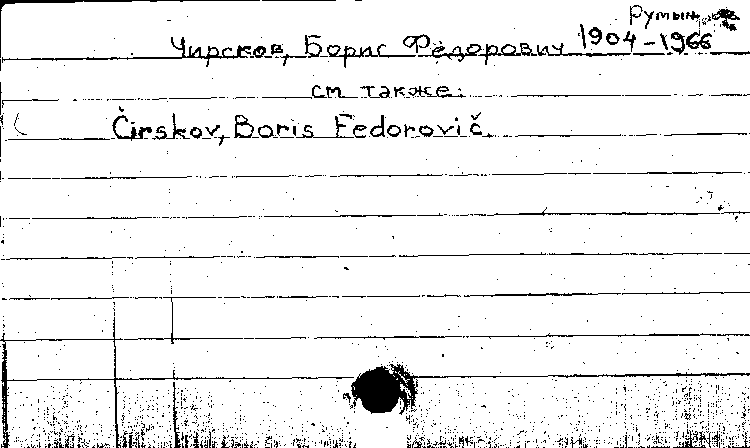 Чирсков, Борис Фёдорович 1904-1966
см также:
Čirskov, Boris Fedorovič.